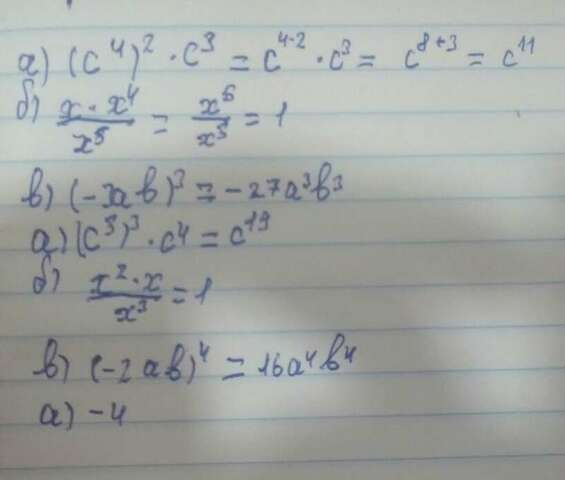 а) (c⁴)² · c³ = c⁴·² · c³ = c⁸⁺³ = c¹¹
б) x · x⁴ / x⁵ = x⁵ / x⁵ = 1
в) (-3ab)³ = -27a³b³
а) (c⁵)³ · c⁴ = c¹⁹
б) x² · x / x³ = 1
в) (-2ab)⁴ = 16a⁴b⁴
а) -4